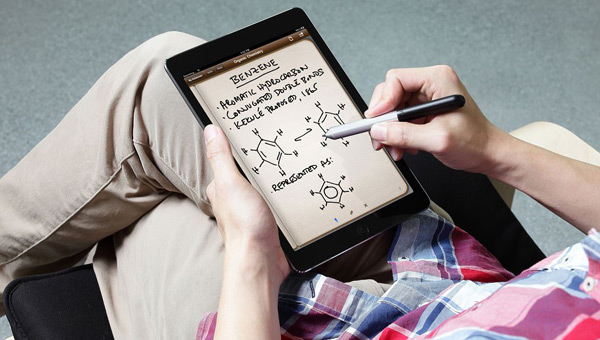 Organic Chemistry
BENZENE
·AROMATIC HYDROCARBON
·CONJUGATED DOUBLE BONDS
·KEKULÉ PROPOSED, 1865
H H H H H H
H H H H H H
·REPRESENTED AS:
H H H H H H